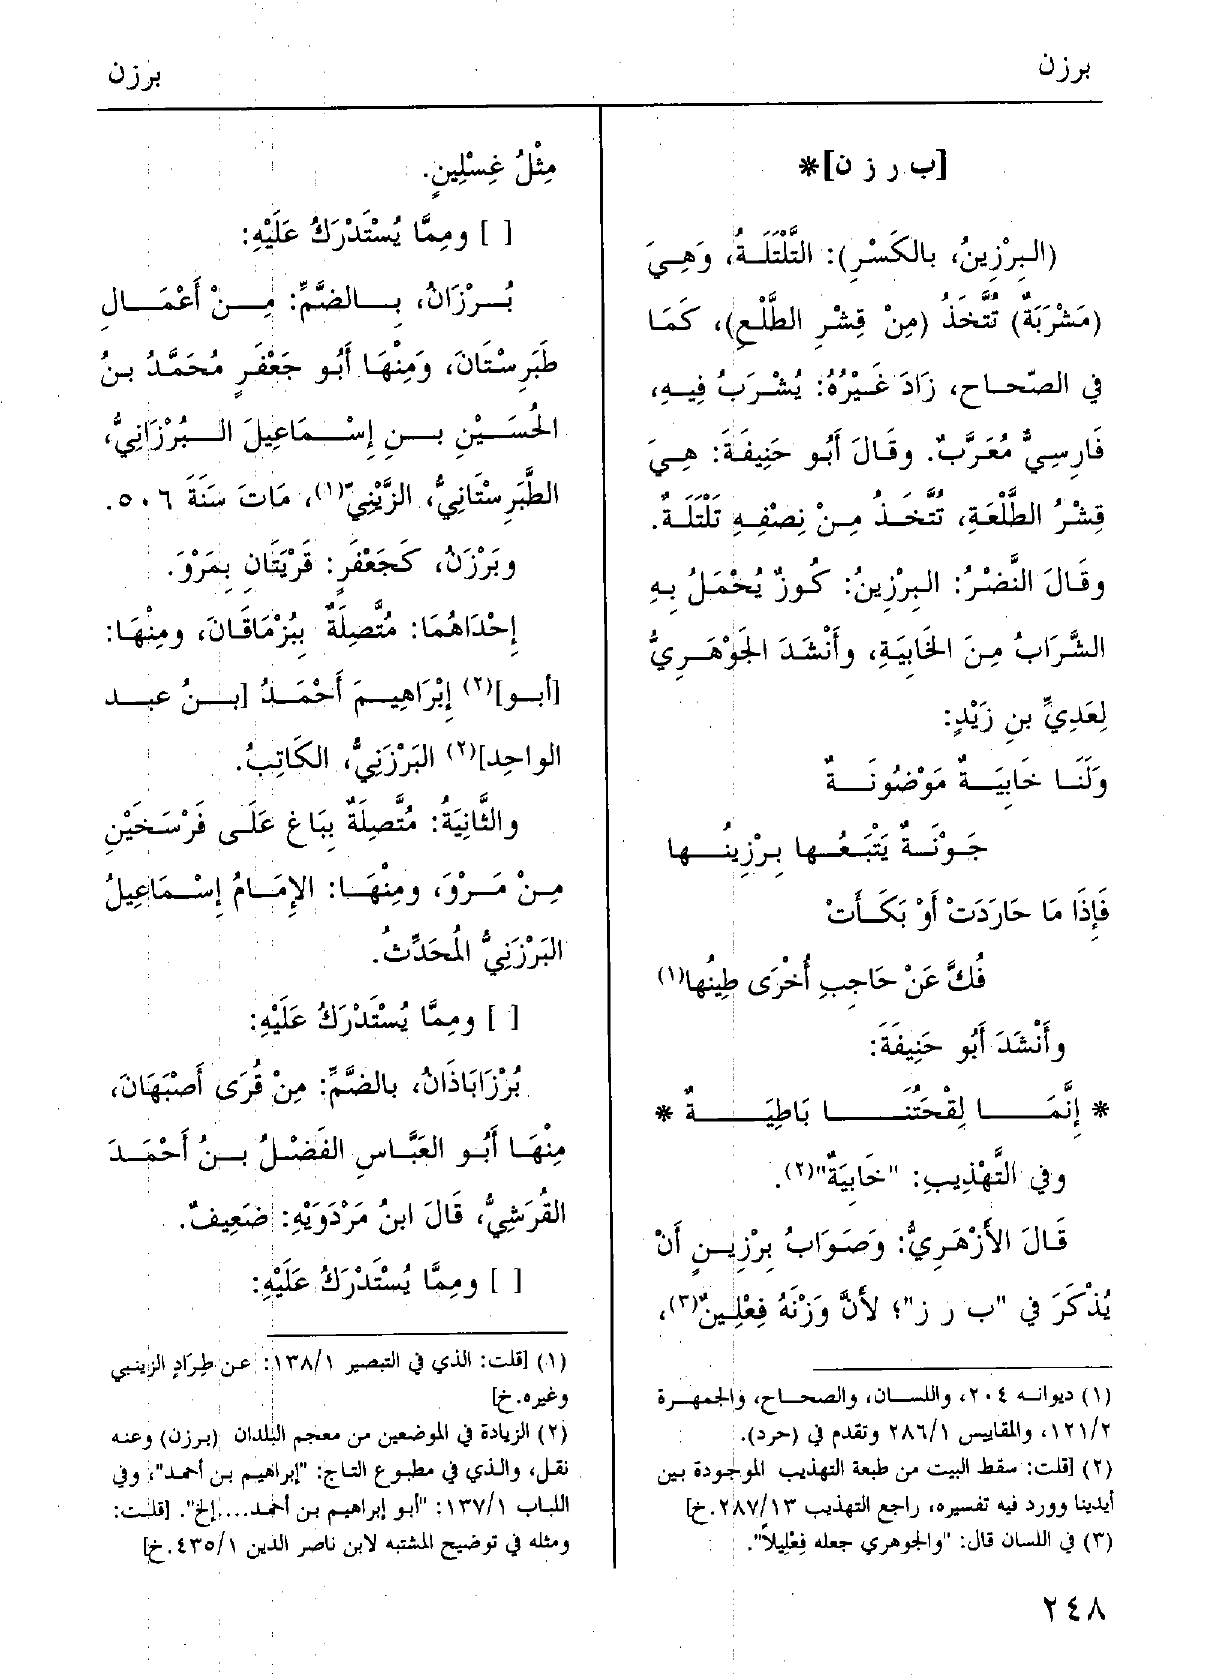 برزن
برزن
[ب ر ز ن]*
(البِرْزِينُ، بالكَسْرِ): التَّلْتَلَةُ، وَهِيَ
(مَشْرَبَةٌ) تُتَّخَذُ (مِنْ قِشْرِ الطَّلْعِ)، كَمَا
في الصّحاحِ، زَادَ غَيْرُهُ: يُشْرَبُ فِيهِ،
فَارِسِيٌّ مُعَرَّبٌ. وقَالَ أَبُو حَنِيفَةَ: هِيَ
قِشْرُ الطَّلْعَةِ، تُتَّخَذُ مِنْ نِصْفِهِ تَلْتَلَةٌ.
وقَالَ النَّضْرُ: البِرْزِينُ: كُوزٌ يُحْمَلُ بِهِ
الشَّرَابُ مِنَ الخَابِيَةِ، وأَنْشَدَ الجَوْهَرِيُّ
لِعَدِيِّ بنِ زَيْدٍ:
ولَنَا خَابِيَةٌ مَوْضُونَةٌ
جَوْنَةٌ يَتْبَعُها بِرْزِينُها
فَإِذَا مَا حَارَدَتْ أَوْ بَكَأَتْ
فُكَّ عَنْ حَاجِبِ أُخْرَى طِينُها(١)
وأَنْشَدَ أَبُو حَنِيفَةَ:
* إِنَّمَا لِقْحَتُنَا بَاطِيَةٌ *
وفي التَّهْذِيبِ: "خَابِيَةٌ"(٢).
قَالَ الأَزْهَرِيُّ: وَصَوَابُ بِرْزِينٍ أَنْ
يُذْكَرَ في "ب ر ز"؛ لأَنَّ وَزْنَهُ فِعْلِينٌ(٣)،
(١) ديوانه ٢٠٤، واللسان، والصحاح، والجمهرة
١٢١/٢، والمقاييس ٢٨٦/١ وتقدم في (حرد).
(٢) [قلت: سقط البيت من طبعة التهذيب الموجودة بين
أيدينا وورد فيه تفسيره، راجع التهذيب ٢٨٧/١٣.خ]
(٣) في اللسان قال: "والجوهري جعله فِعْلِيلاً".
مِثْلُ غِسْلِينٍ.
[ ] ومِمَّا يُسْتَدْرَكُ عَلَيْهِ:
بُرْزَانُ، بالضَّمِّ: مِنْ أَعْمَالِ
طَبَرِسْتَانَ، وَمِنْهَا أَبُو جَعْفَرٍ مُحَمَّدُ بنُ
الحُسَيْنِ بنِ إِسْمَاعِيلَ البُرْزَانِيُّ،
الطَّبَرِسْتَانِيُّ، الزَّيْنِيّ(١)، مَاتَ سَنَةَ ٥٠٦.
وبَرْزَنُ، كَجَعْفَرٍ: قَرْيَتَانِ بِمَرْوَ.
إِحْدَاهُمَا: مُتَّصِلَةٌ بِبُزْمَاقَانَ، ومِنْهَا:
[أبو](٢) إِبْرَاهِيمَ أَحْمَدُ [بنُ عبد
الواحِد](٢) البَرْزَنِيُّ، الكَاتِبُ.
والثَّانِيَةُ: مُتَّصِلَةٌ بِبَاغِ عَلَى فَرْسَخَيْنِ
مِنْ مَرْوَ، ومِنْهَا: الإِمَامُ إِسْمَاعِيلُ
البَرْزَنِيُّ المُحَدِّثُ.
[ ] ومِمَّا يُسْتَدْرَكُ عَلَيْهِ:
بُرْزَابَاذَانُ، بالضَّمِّ: مِنْ قُرَى أَصْبَهَانَ،
مِنْهَا أَبُو العَبَّاسِ الفَضْلُ بنُ أَحْمَدَ
القُرَشِيُّ، قَالَ ابنُ مَرْدَوَيْهِ: ضَعِيفٌ.
[ ] ومِمَّا يُسْتَدْرَكُ عَلَيْهِ:
(١) [قلت: الذي في التبصير ١٣٨/١: عن طِرَادٍ الزينبي
وغيره.خ]
(٢) الزيادة في الموضعين من معجم البلدان (برزن) وعنه
نقل، والذي في مطبوع التاج: "إبراهيم بن أحمد"، وفي
اللباب ١٣٧/١: "أبو إبراهيم بن أحمد....إلخ". [قلت:
ومثله في توضيح المشتبه لابن ناصر الدين ٤٣٥/١.خ]
٢٤٨